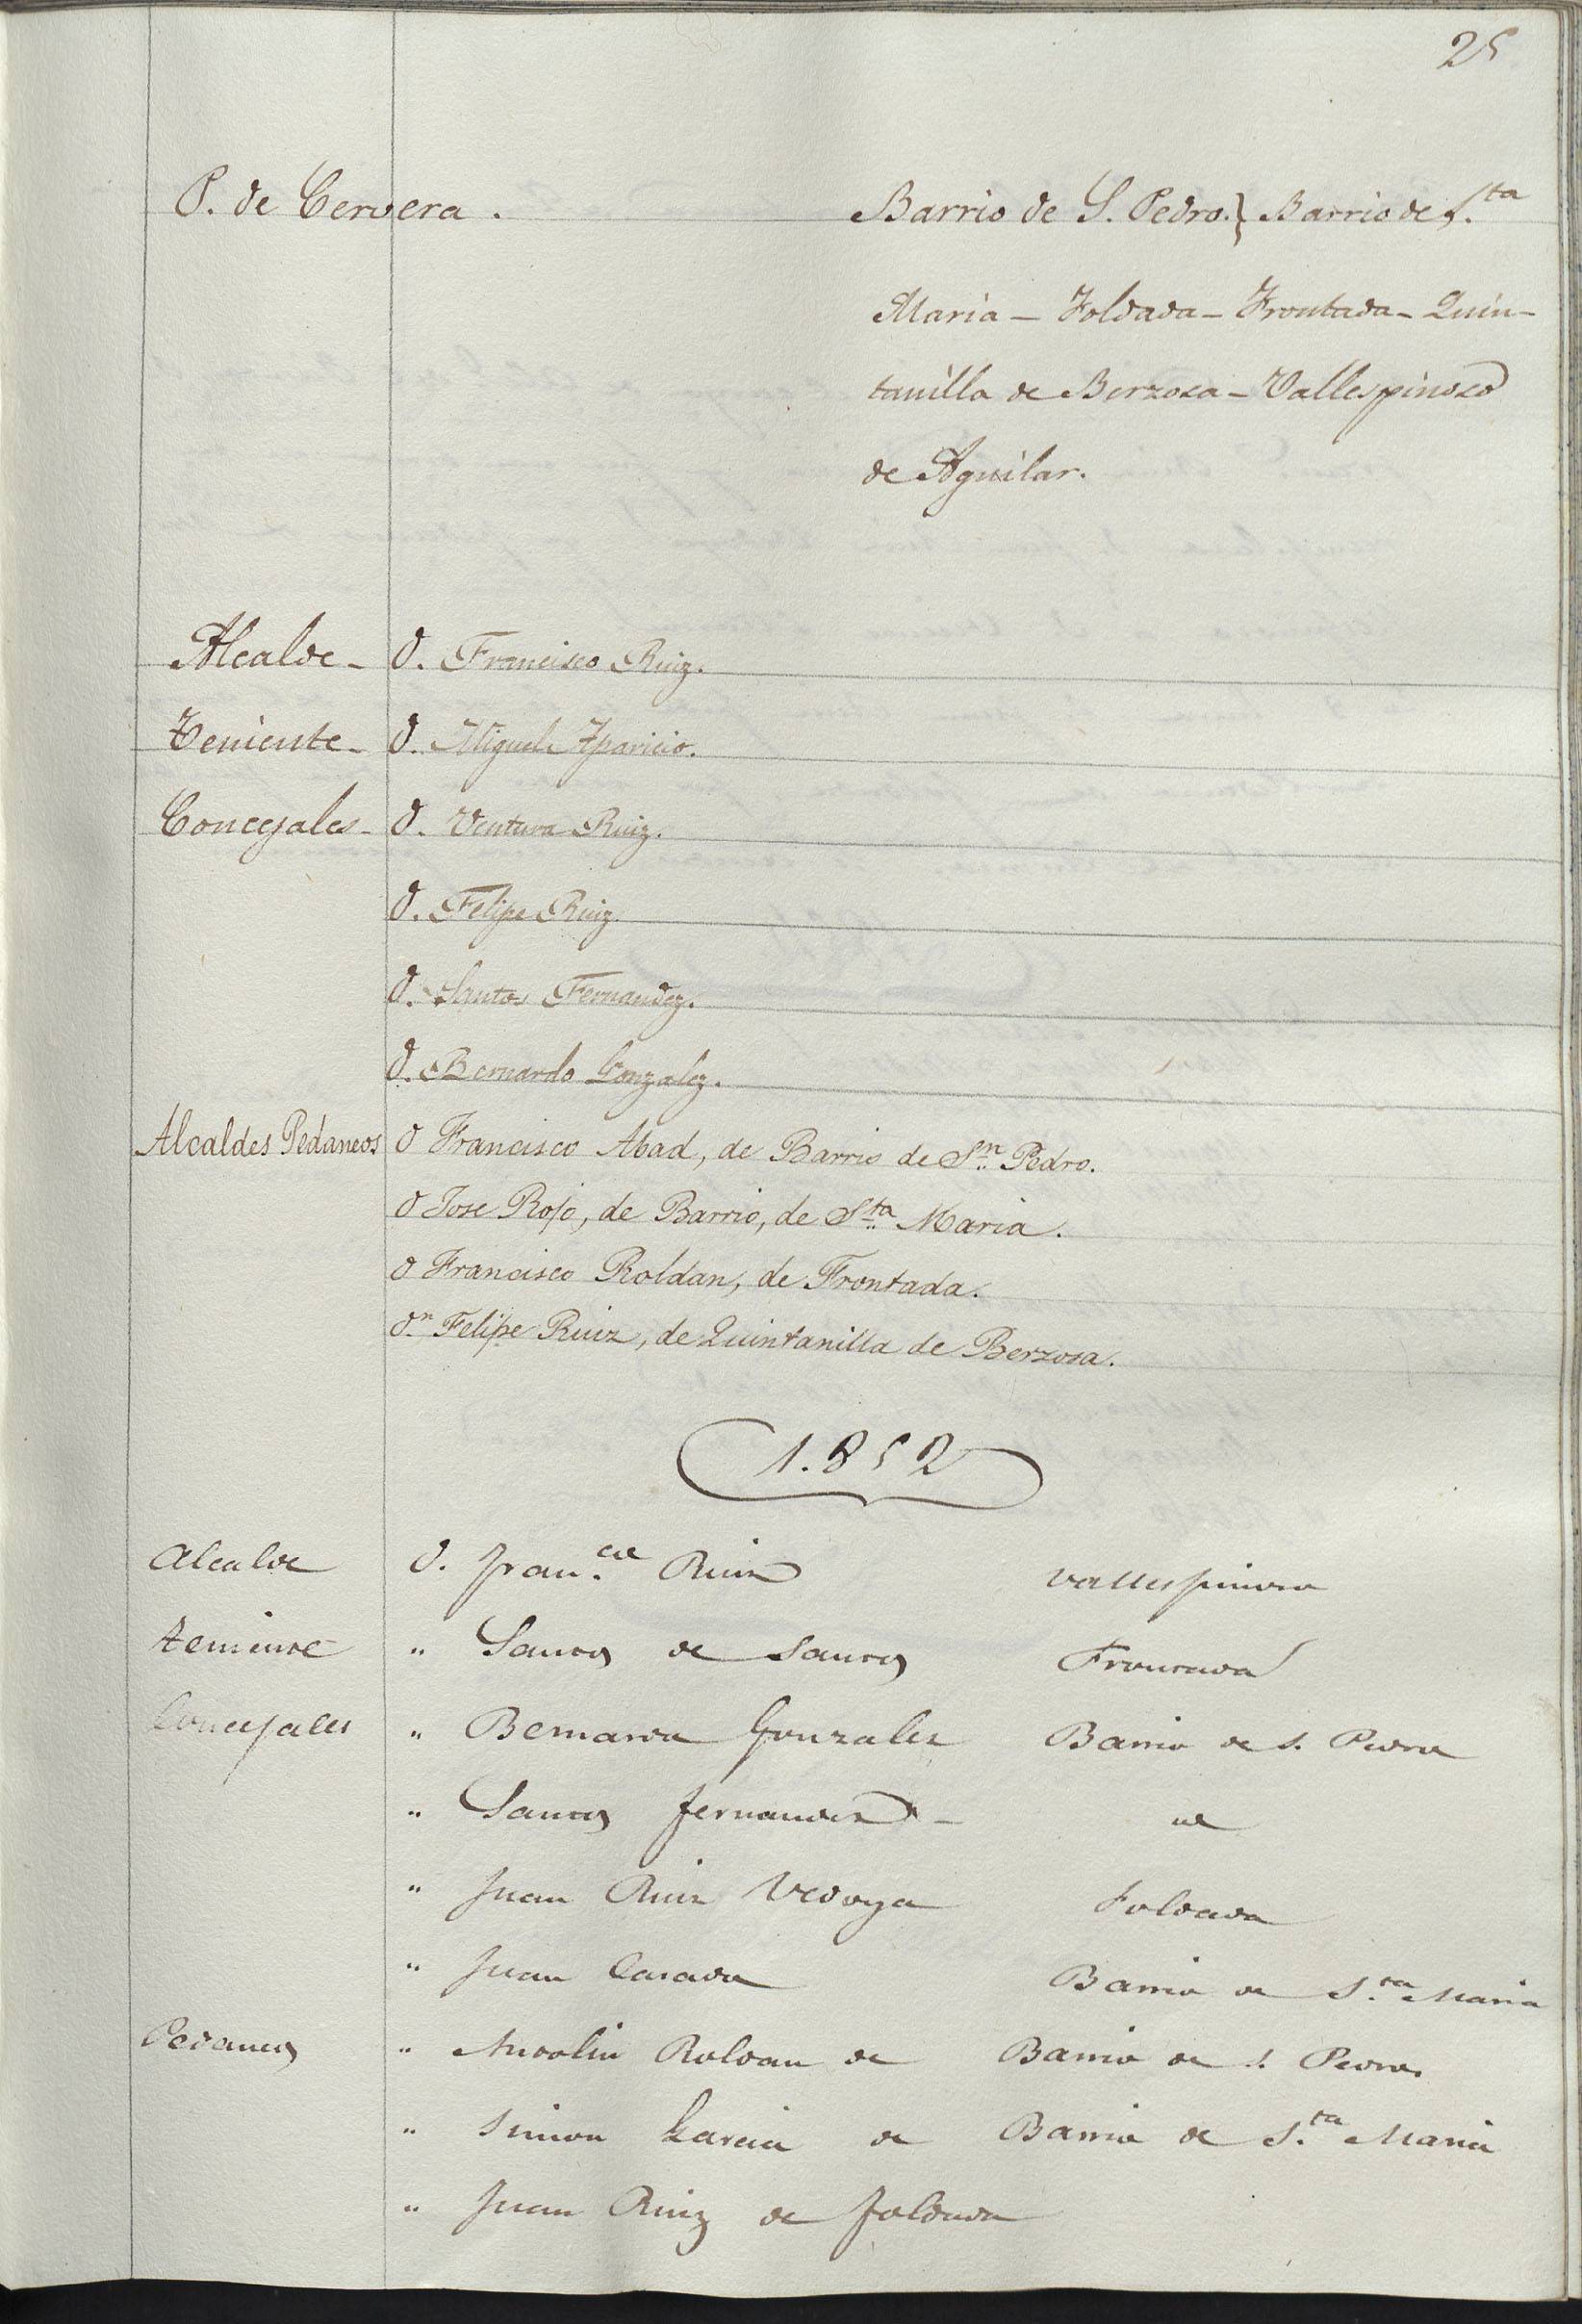 25
P. de Cervera.
Barrio de S. Pedro.} Barrio de S.ta
Maria - Foldada - Frontada - Quin-
tanilla de Berzosa - Vallespinoso
de Aguilar.
Alcalde - D. Francisco Ruiz.
Teniente - D. Miguel Aparicio.
Concejales - D. Ventura Ruiz.
D. Felipe Ruiz
D. Santos Fernandez.
D. Bernardo Gonzalez.
Alcaldes Pedaneos D Francisco Abad, de Barrio de Sn Pedro.
D Jose Rojo, de Barrio, de Sta Maria.
D Francisco Roldan, de Frontada.
Dn Felipe Ruiz, de Quintanilla de Berzosa.
1.852
Alcalde D. Fran.co Ruiz Vallespinoso
Teniente " Santos de Santos Frontada
Concejales " Bernardo Gonzalez Barrio de S. Pedro
" Santos Fernandez - id
" Juan Ruiz Vedoya Foldada
" Juan Casado Barrio de S.ta Maria
Pedaneos " Roldan de Barrio de S. Pedro.
" Simon Garcia de Barrio de S.ta Maria
" Juan Ruiz de Foldada